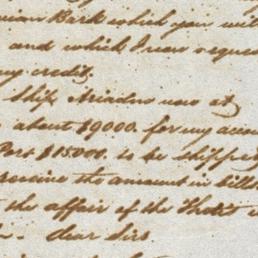 Bark which you will
and which I now reques
my credit.
Ship Ariadne now at
about $9000. for my accou
Port $15000. to be shipped
receive the amount in bills
the affair of the
dear Sirs